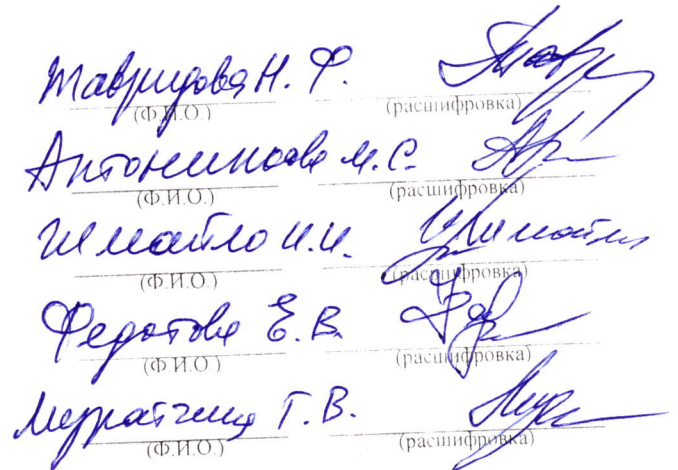 Тавридова Н. Ф.
(Ф.И.О.) (расшифровка)
Антонинова М.С.
(Ф.И.О.) (расшифровка)
Шмайло И.И. Шмайло
(Ф.И.О.) (расшифровка)
Федотова Е. В.
(Ф.И.О.) (расшифровка)
Г. В.
(Ф.И.О.) (расшифровка)